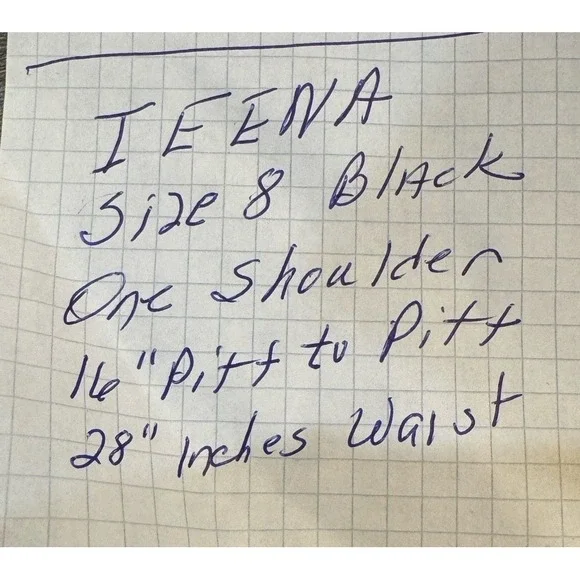 IEENA
Size 8 Black
One Shoulder
16" Pitt to Pitt
28" Inches Waist